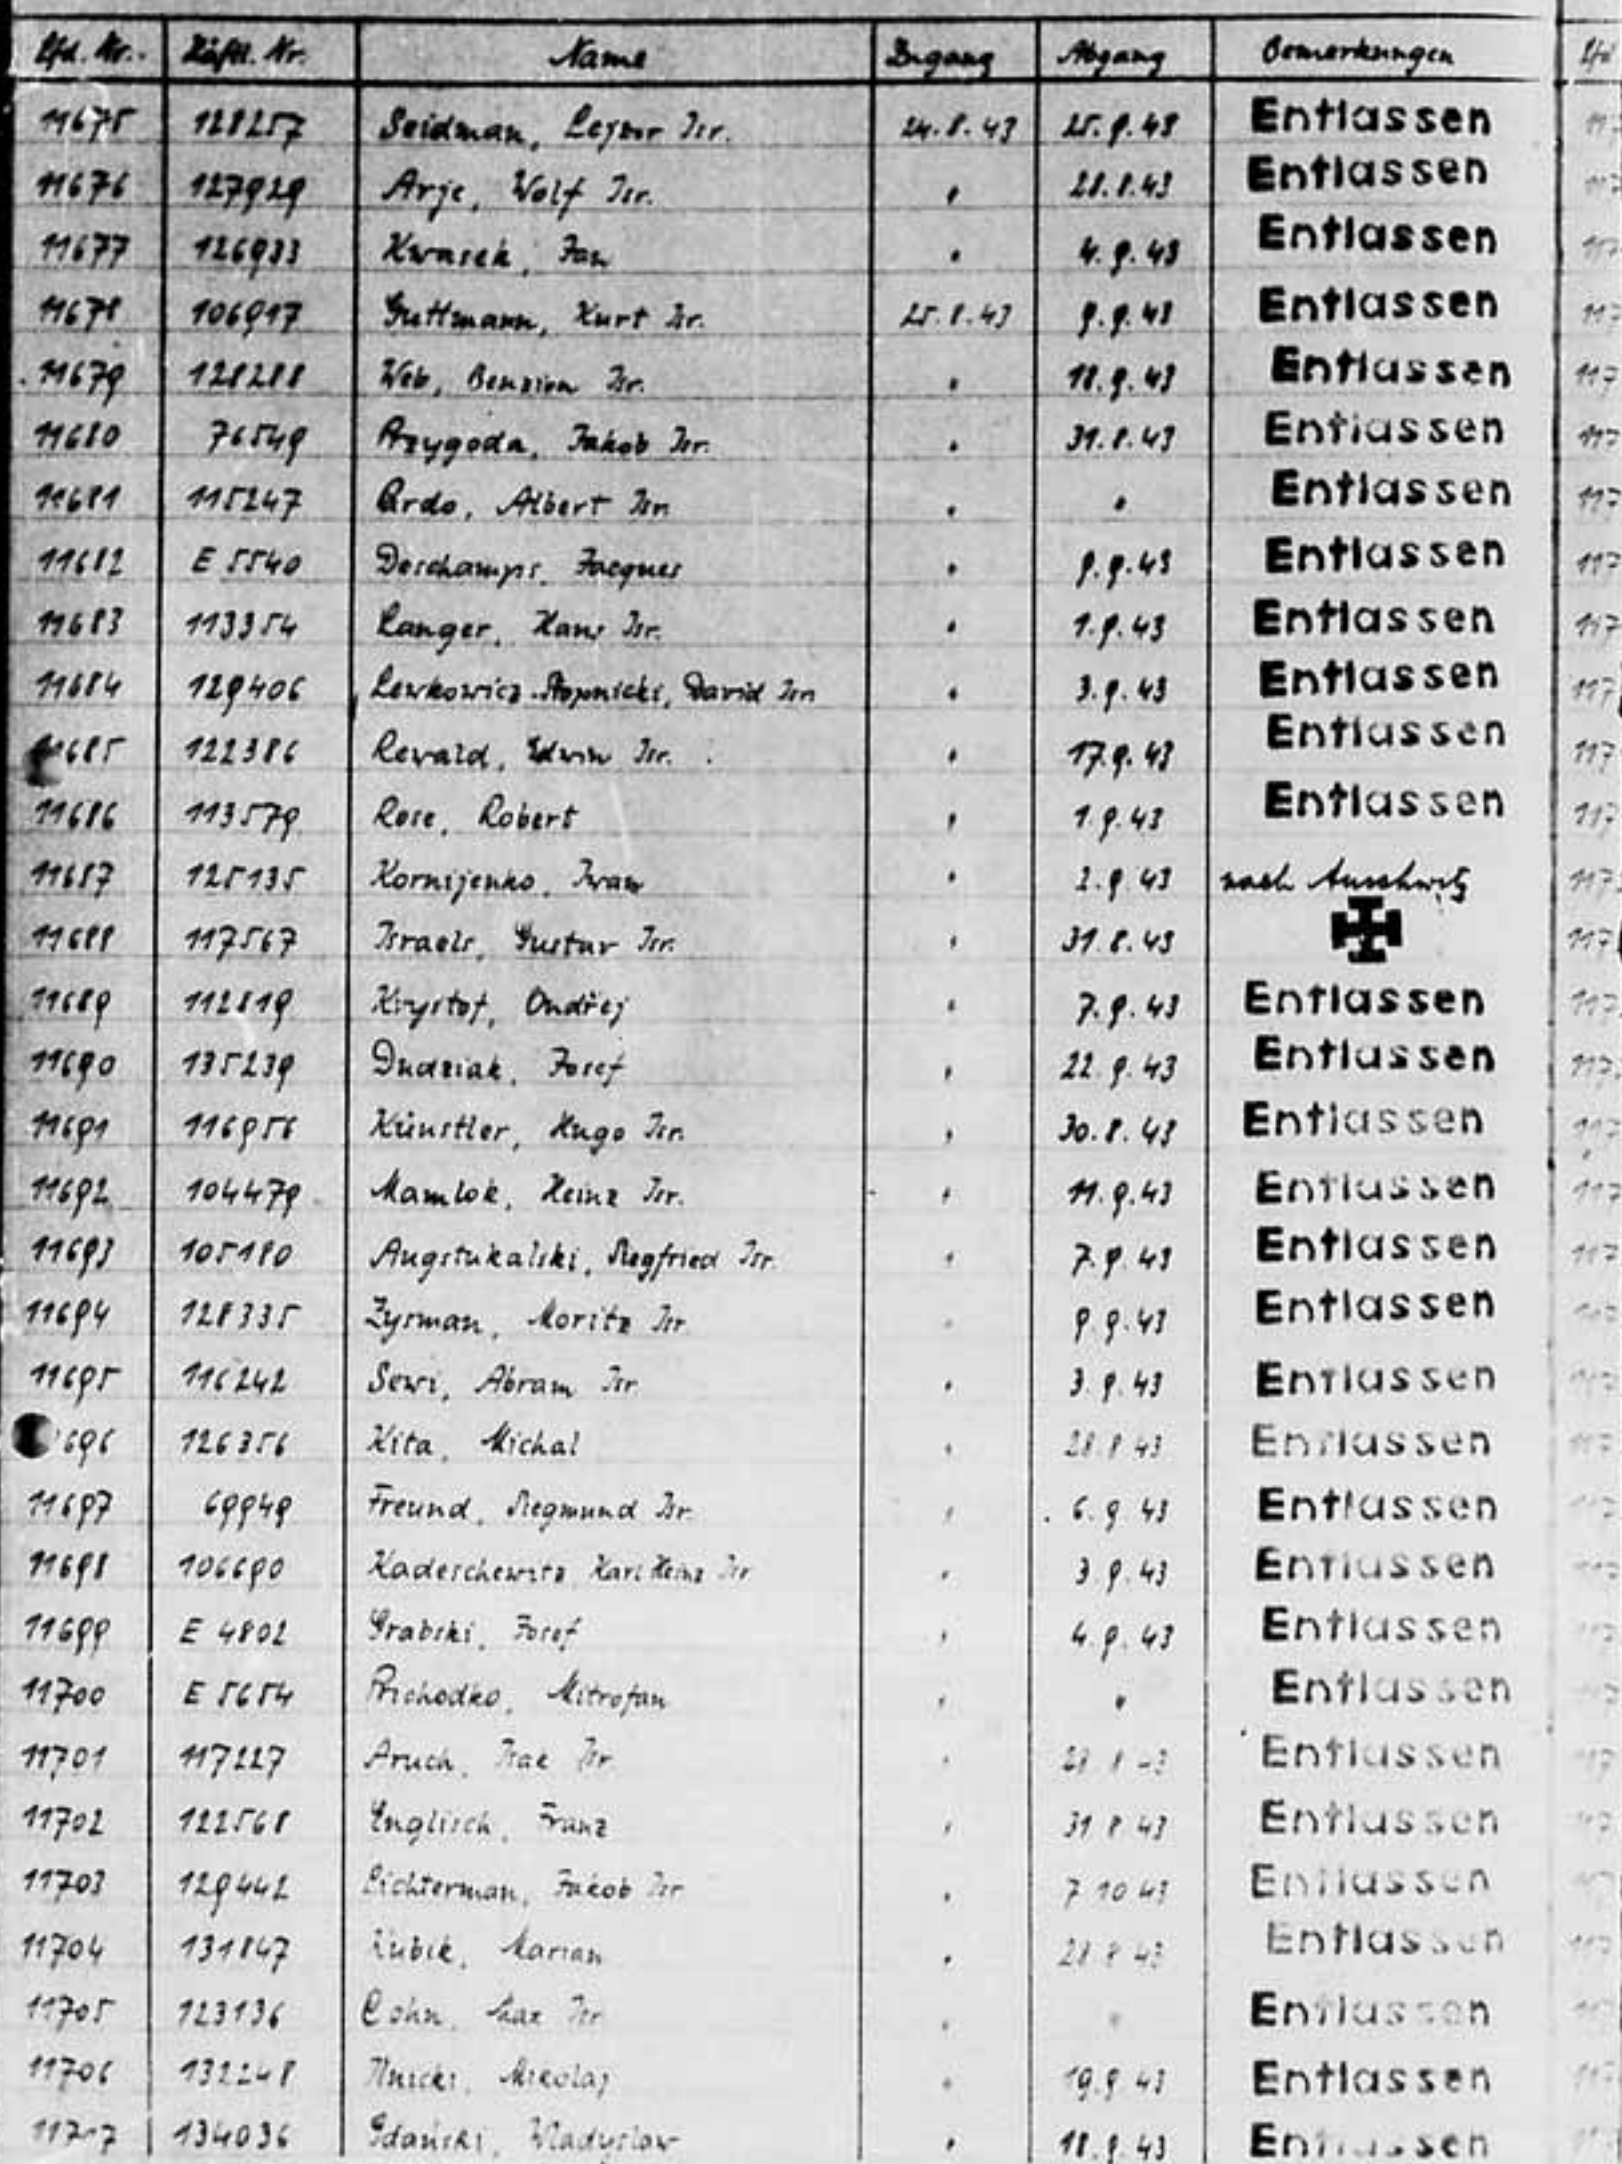 Lfd. Nr. Häftl. Nr. Name Zugang Abgang Bemerkungen Lfd
11675 128257 Seidman, Lejzor Isr. 24.8.43 25.9.43 Entlassen
11676 127929 Arje, Wolf Isr. " 28.8.43 Entlassen
11677 126933 Kwasek, Jan " 4.9.43 Entlassen
11678 106917 Guttmann, Kurt Isr. 25.8.43 9.9.43 Entlassen
11679 128288 Web, Benzion Isr. " 18.9.43 Entlassen
11680 76549 Przygoda, Jakob Isr. " 31.8.43 Entlassen
11681 115247 Ardo, Albert Isr. " " Entlassen
11682 E 5540 Deschamps, Jacques " 9.9.43 Entlassen
11683 113354 Langer, Hans Isr. " 1.9.43 Entlassen
11684 129406 Lewkowicz-Stopnicki, David Isr. " 3.9.43 Entlassen
11685 122386 Rewald, Edwin Isr. " 17.9.43 Entlassen
11686 113579 Rose, Robert " 1.9.43 Entlassen
11687 125135 Kornijenko, Iwan " 2.9.43 nach Auschwitz
11688 117567 Israels, Gustav Isr. " 31.8.43
11689 112819 Krystof, Ondřej " 7.9.43 Entlassen
11690 135239 Dudziak, Josef " 22.9.43 Entlassen
11691 116956 Künstler, Hugo Isr. " 30.8.43 Entlassen
11692 104479 Mamlok, Heinz Isr. " 11.9.43 Entlassen
11693 105180 Augstukalski, Siegfried Isr. " 7.9.43 Entlassen
11694 128335 Zysman, Moritz Isr. " 9.9.43 Entlassen
11695 116242 Sewi, Abram Isr. " 3.9.43 Entlassen
696 126356 Kita, Michal " 28.8.43 Entlassen
11697 69949 Freund, Siegmund Isr. " 6.9.43 Entlassen
11698 106690 Kadeschewitz Karl Heinz Isr. " 3.9.43 Entlassen
11699 E 4802 Grabski, Josef " 4.9.43 Entlassen
11700 E 5654 Prichodko, Mitrofan " " Entlassen
11701 117227 Aruch, Isac Isr. " Entlassen
11702 122568 Englisch, Franz " 31.8.43 Entlassen
11703 129442 Lichterman, Jakob Isr. " 7.10.43 Entlassen
11704 131847 Kubik, Marian " 28.8.43 Entlassen
11705 123136 Cohn, Max Isr. " " Entlassen
11706 132248 Ilnicki, Mikolaj " 19.9.43 Entlassen
117 7 134036 Gdański, Wladyslaw " 18.9.43 Entlassen